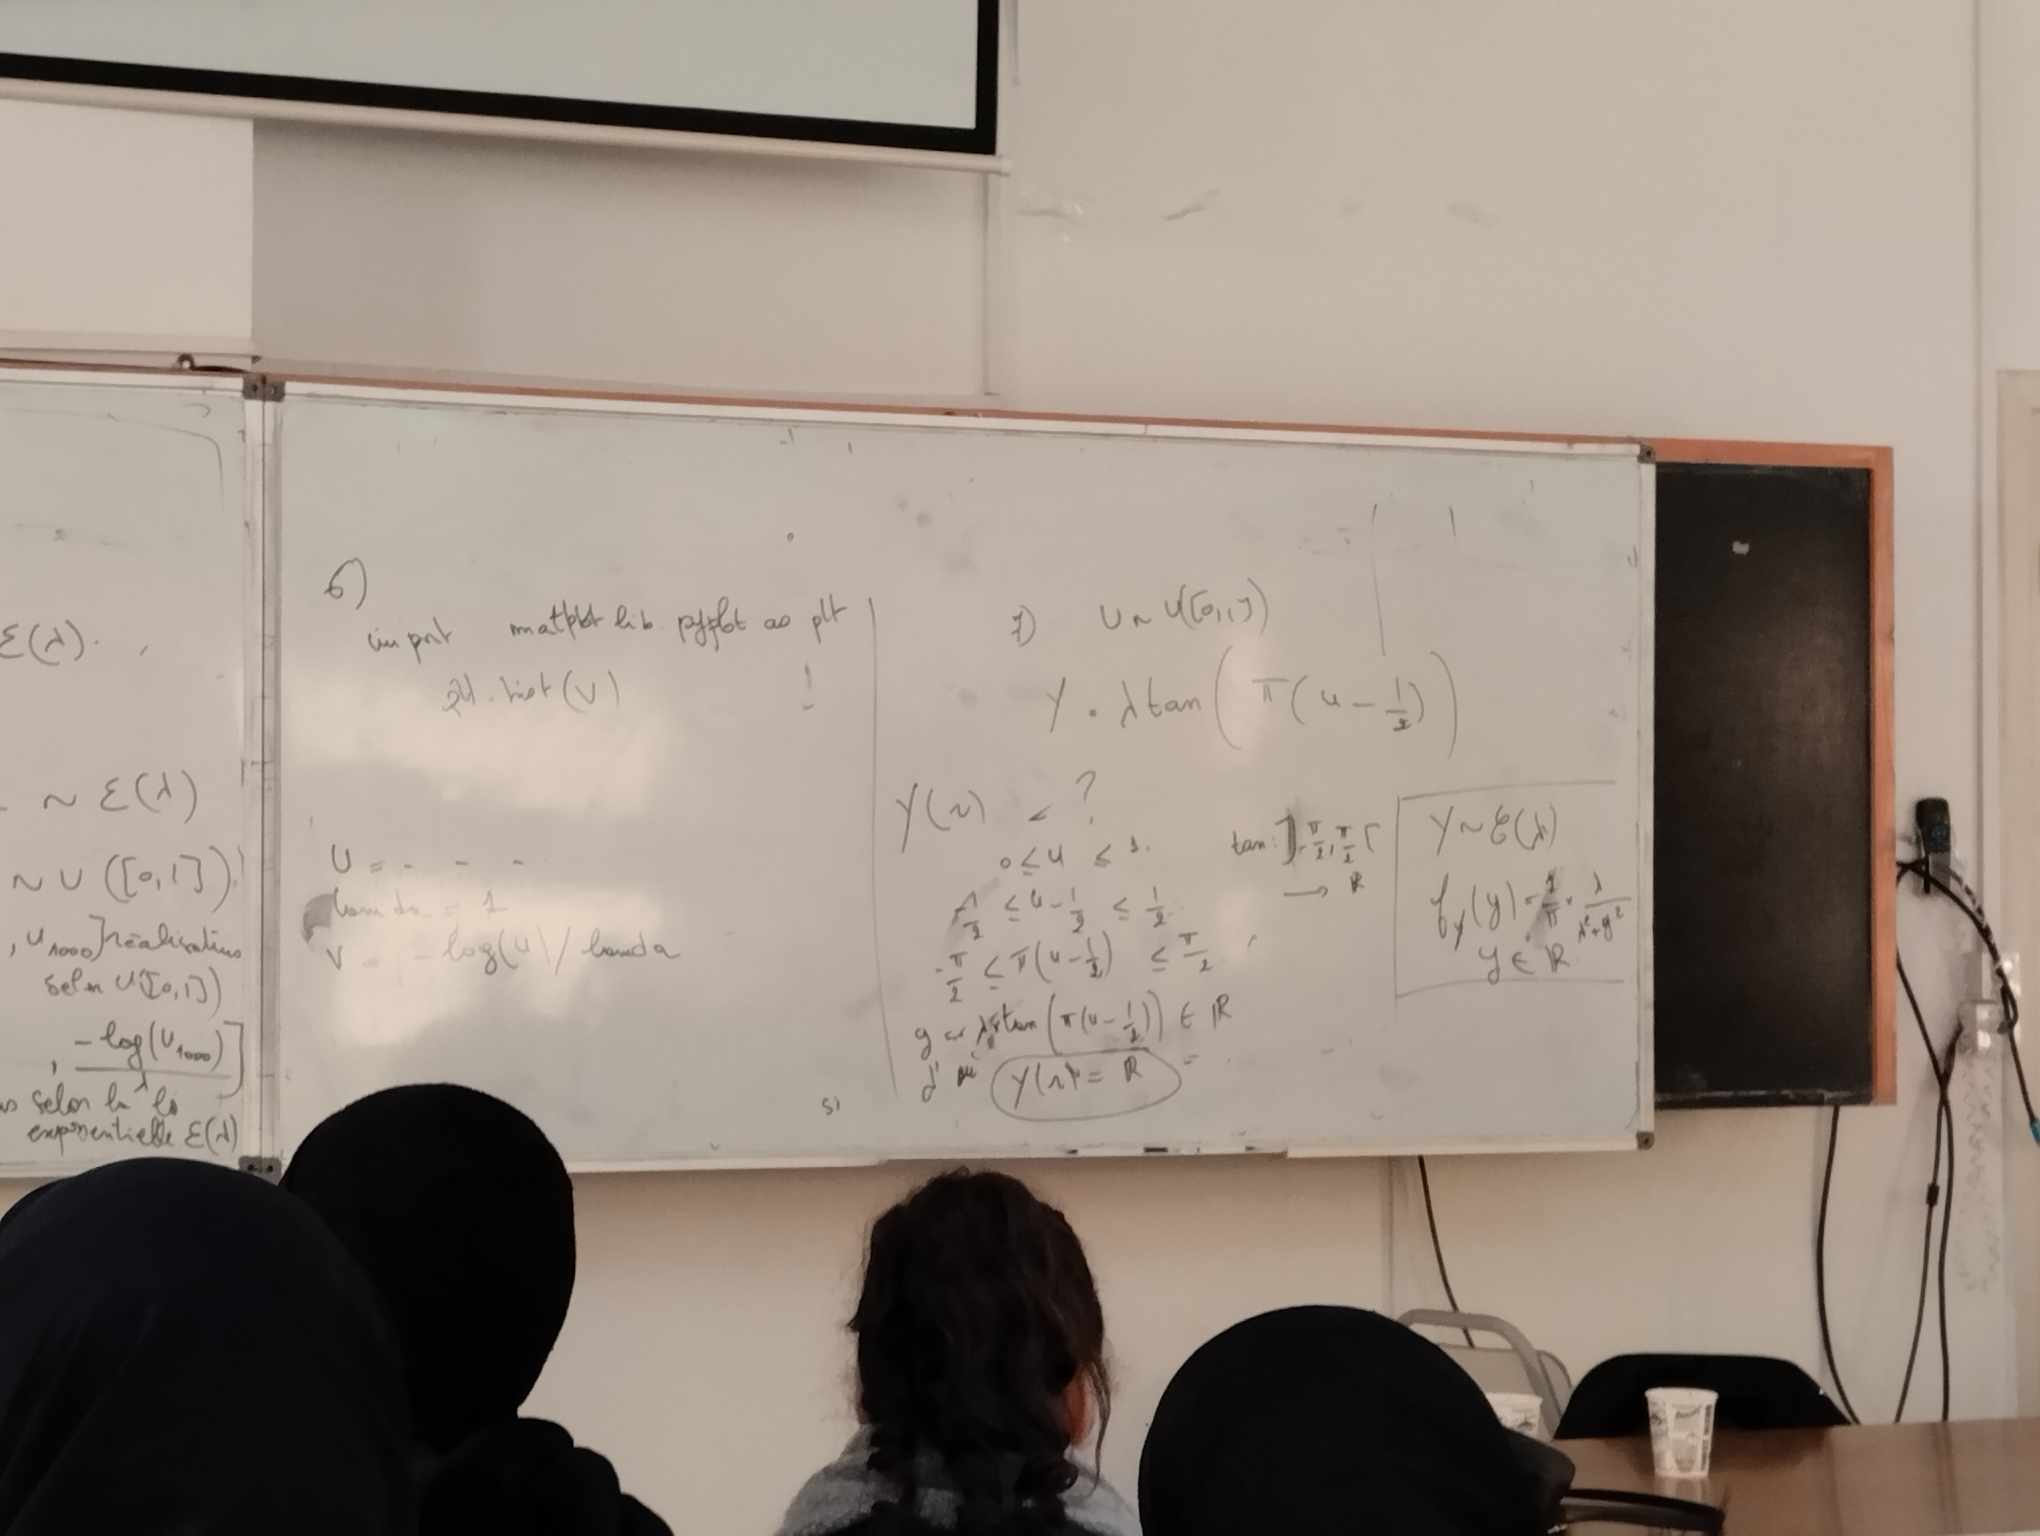 ε(λ).
~ ε(λ)
~ U ([0,1])
, u1000] réalisations
selon U([0,1])
, -log(U1000)/λ ]
selon la loi
exponentielle ε(λ)
6)
import matplotlib.pyplot as plt
plt.hist(V)
U = - - -
lamda = 1
V = -log(U)/lamda
7) U ~ U([0,1])
Y = λ tan(π(u - 1/2))
Y(Ω) = ?
0 ≤ u ≤ 1.
-1/2 ≤ u - 1/2 ≤ 1/2
-π/2 ≤ π(u - 1/2) ≤ π/2
λ tan(π(u - 1/2)) ∈ ℝ
d'où Y(Ω) = ℝ
tan: ]-π/2, π/2[
→ ℝ
Y ~ C(λ)
f_Y(y) = 1/π × λ/(λ²+y²)
y ∈ ℝ